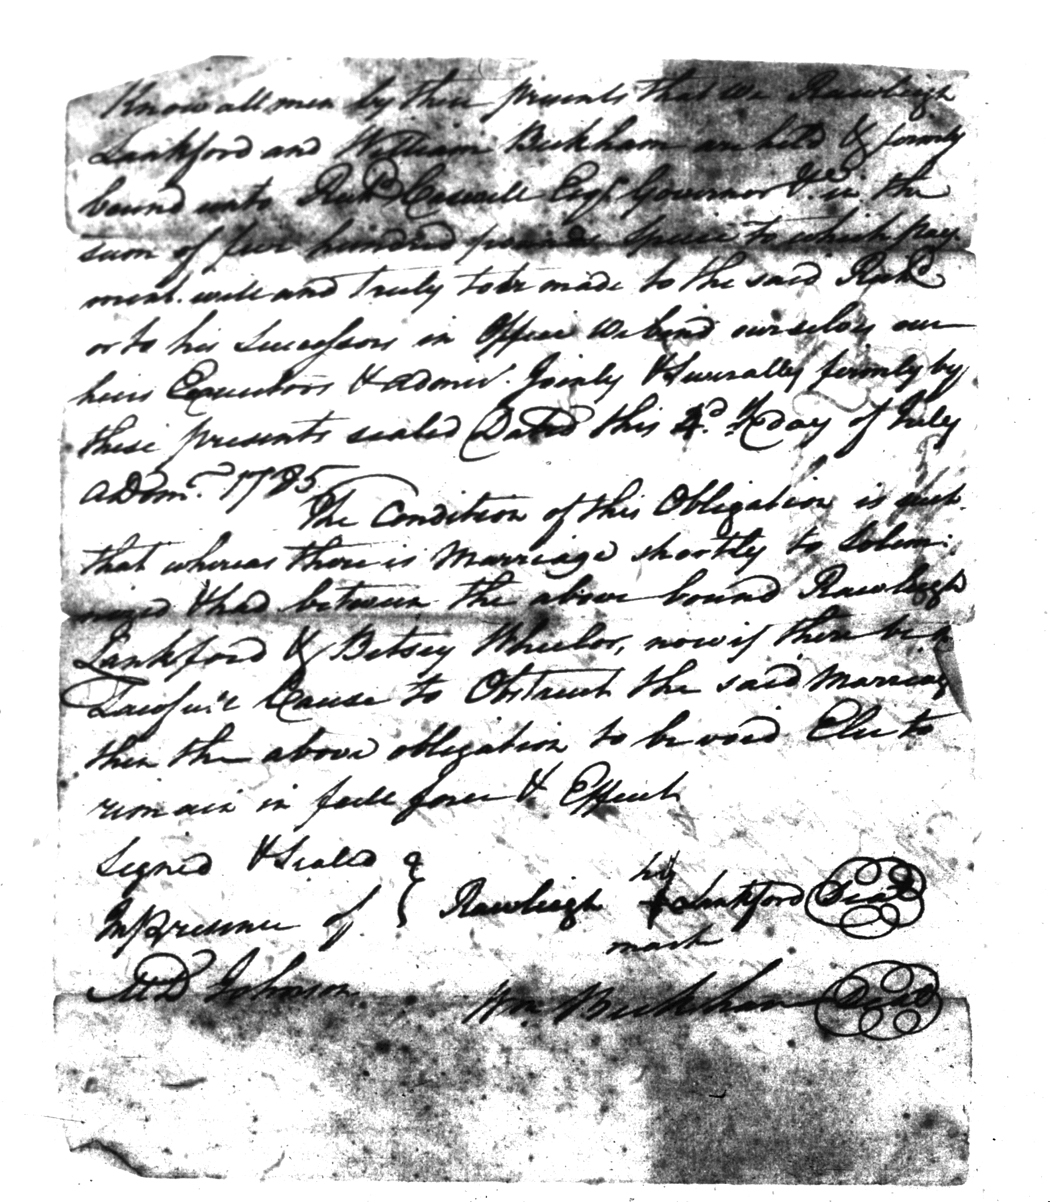 Know all men by these presents that We Rawleigh
Lankford and William Beckham are held & firmly
bound unto Richd. Caswell Esqr. Governor &c. in the
sum of five hundred pounds specie to which pay
ment. well and truly to be made to the said Richd.
or to his Successors in Office We bind ourselves our
heirs Executors & admrs. Jointly & Severally firmly by
these presents sealed Dated this day of July
aDom. 1785
The Condition of this Obligation is such
that whereas there is Marriage shortly to Solem:
nized & had between the above bound Rawleigh
Lankford & Betsey Wheelor, now if there be no
Lawfull Cause to Obstruct the said Marriag
then the above obligation to be void Else to
remain in full force & Effect
Signed & Sealed
In presence of } Rawleigh his Lankford Seal
mark
Johnson. Wm. Beckham Seal